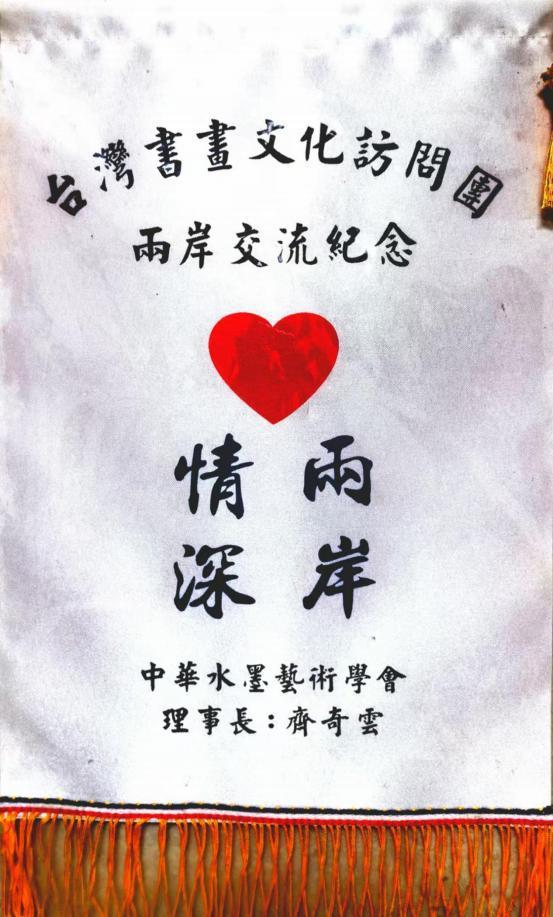 台灣書畫文化訪問團
兩岸交流紀念
兩岸
情深
中華水墨藝術學會
理事長：齊奇雲